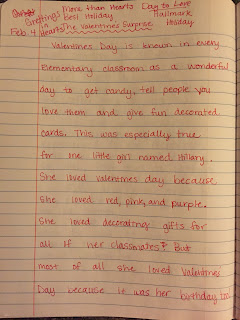 More than Hearts Day to Love
Smittings Best Holiday Hallmark
Feb. 4 in Hearts The Valentine's Surprise Holiday
Valentines Day is known in every
elementary classroom as a wonderful
day to get candy, tell people you
love them and give fun decorated
cards. This was especially true
for one little girl named Hillary.
She loved valentines day because
she loved red, pink, and purple.
She loved decorating gifts for
all of her classmates! But
most of all she loved Valentines
Day because it was her birthday too.